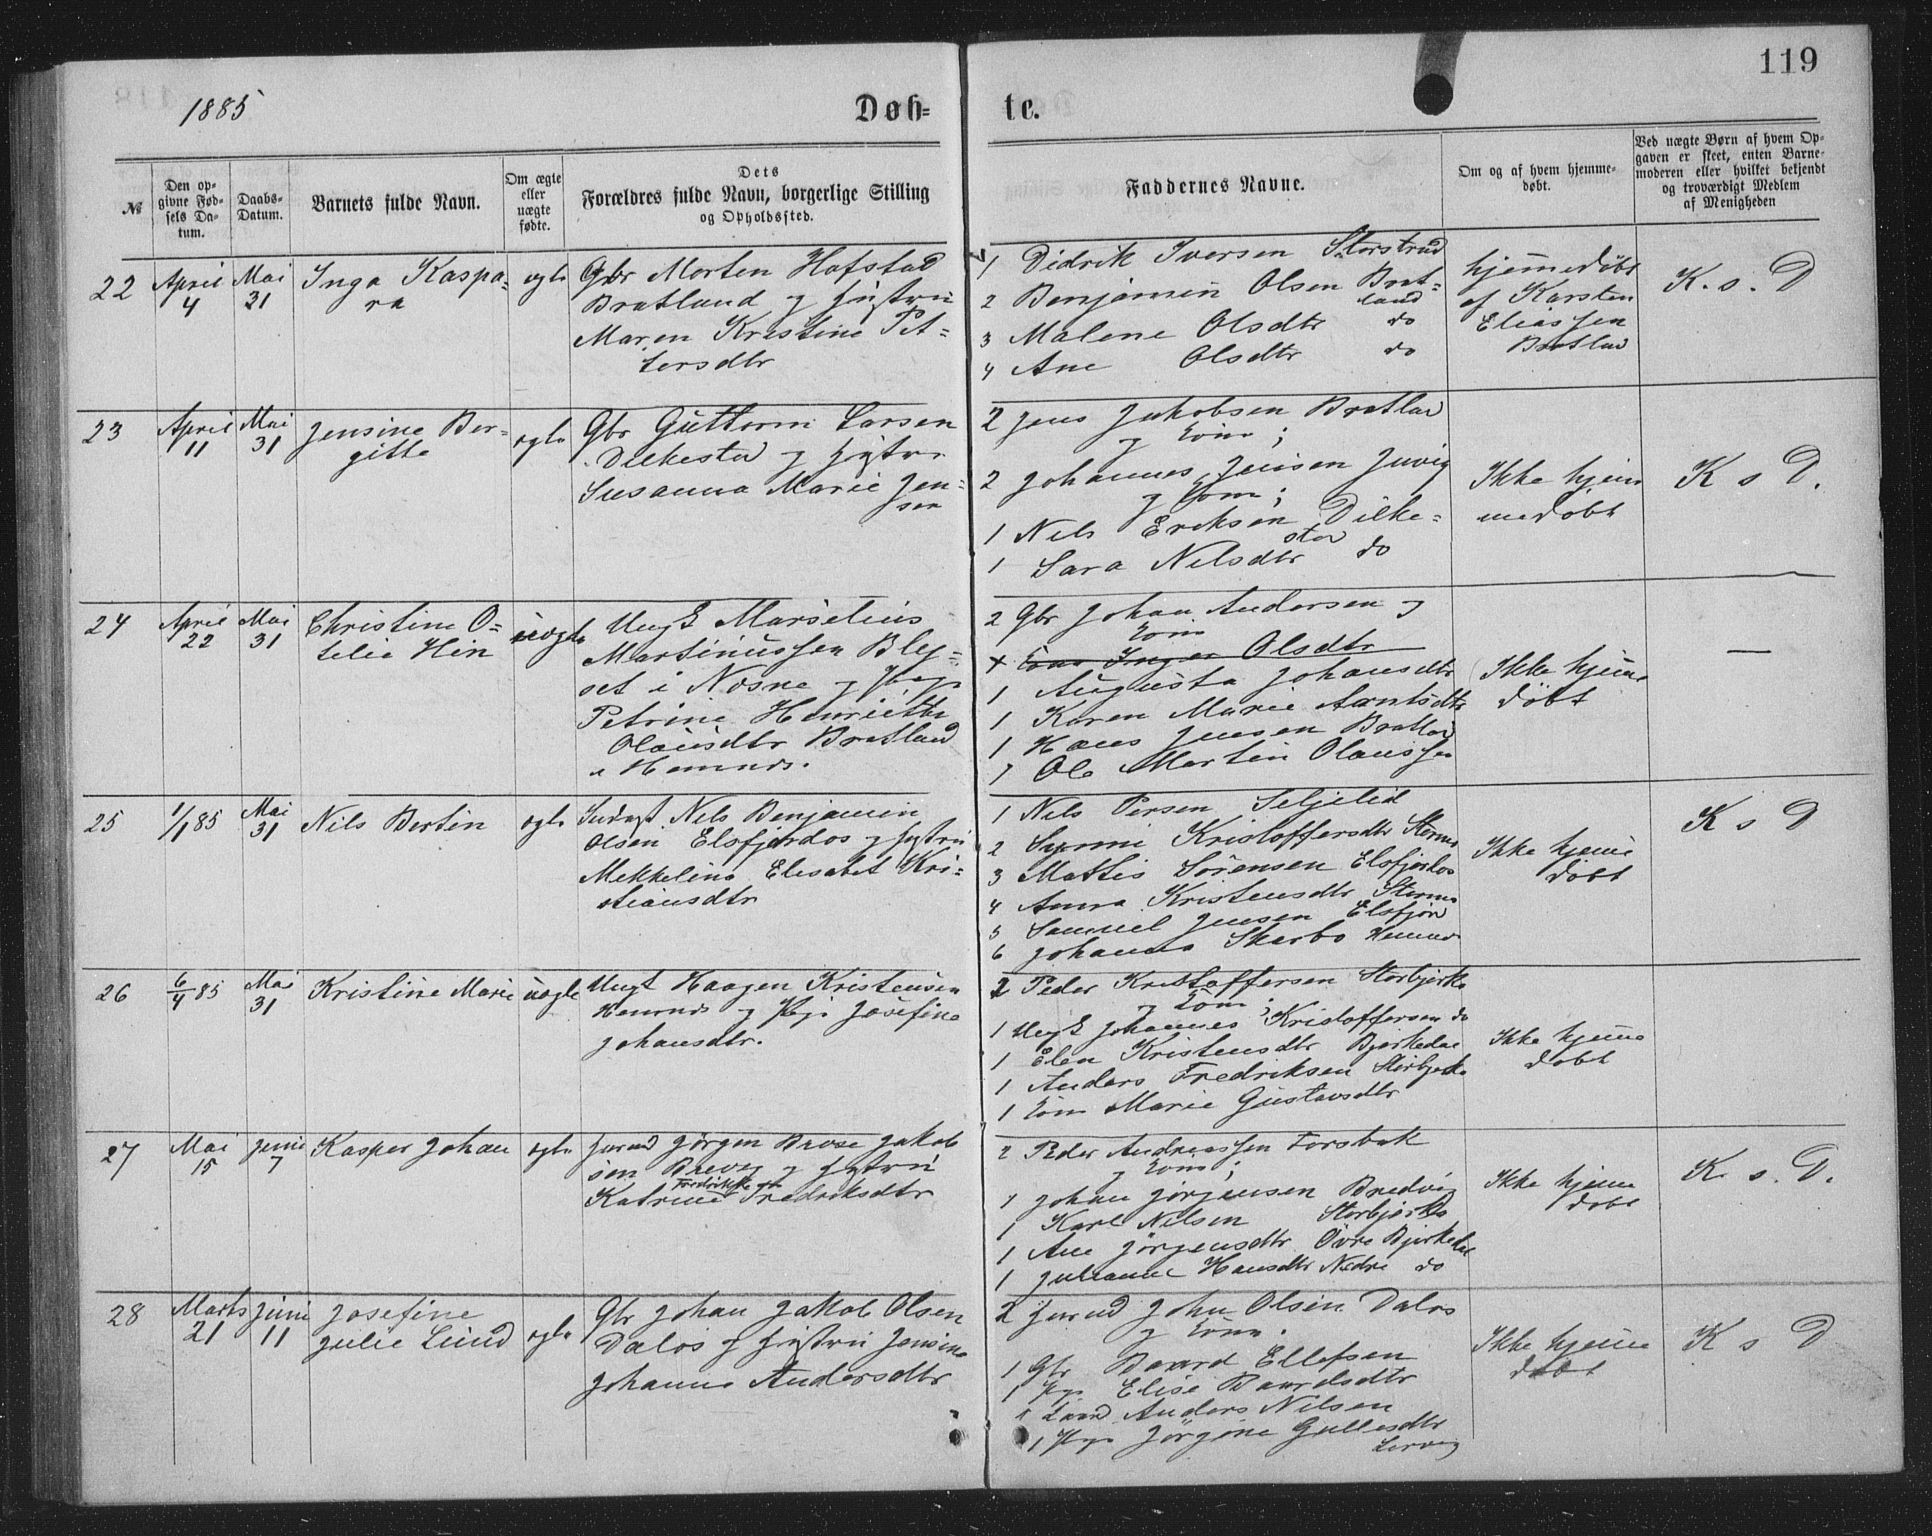 119
1885
Døb=
te.
№
Den op-
givne Fød-
sels Da-
tum.
Daabs-
Datum.
Barnets fulde Navn.
Om ægte
eller
uægte
fødte.
Dets
Forældres fulde Navn, borgerlige Stilling
og Opholdssted.
Faddernes Navne.
Om og af hvem hjemme-
døbt.
Ved uægte Børn af hvem Op-
gaven er skeet, enten Barne-
moderen eller hvilket bekjendt
og troværdigt Medlem
af Menigheden
22
April
4
Mai
31
Inga Kaspa-
ra
egte
Gbr Morten Hofstad
Bratland og Hustru
Maren Kristine Pet-
tersdtr
1 Didrik Iversen Storstrud
2 Benjamin Olsen Brat-
land
3 Malene Olsdtr do
4 Ane Olsdtr do
hjemmedøbt
af Karsten
Eliassen
Bratlad
K. s. D
23
April
11
Mai
31
Jensine Ber-
gitte
egte
Gbr Guttorm Larsen
Dilkestad og Hustru
Susanna Marie Jen-
sen
2 Jens Jakobsen Bratlad
og Kone;
2 Johannes Jensen Juvig
og Kone;
1 Nils Eriksen Dilke-
stad
1 Sara Nilsdtr do
Ikke hjem
medøbt
K s D.
24
April
22
Mai
31
Christine O-
telie Hin
uegte
Ungk Marselius
Martinussen Bley-
set i Nesne og Pige
Petrine Henriette
Olausdtr Bratland
i Hemnes.
2 Gbr Johan Andersen og
Kone
+ Kone Inger Olsdtr
1 Augusta Johansdtr
1 Karen Marie Arntsdtr
1 Hans Jensen Bratlad
1 Ole Martin Olaussen
Ikke hjeme
døbt
—
25
1/1 85
Mai
31
Nils Bertin
egte
Indegt Nils Benjamin
Olsen Elsfjordos og Hustru
Mekkeline Elesabet Kri-
stiansdtr
1 Nils Persen Seljelid
2 Kristoffersdtr
3 Mattis Sørensen Elsfjordos
4 Anna Kristensdtr
5 Samuel Jensen Elsfjord
6 Johanna Skarbo Hemnes
Ikke hjeme
døbt
K s D
26
6/4 85
Mai
31
Kristine Marie
uegte
Ungk Haagen Kristensen
Hemnes og Pige Josefine
Johansdtr.
2 Peder Kristoffersen Storbjerka
og Kone;
1 Ungk Johannes Kristoffersen do
1 Elen Kristensdtr Bjerkedal
1 Anders Fredriksen Storbjerka
1 Kone Marie Gustavsdtr
Ikke hjeme
døbt
27
Mai
15
Juni
7
Kasper Johan
egte
Inrud Jørgen Brose Jakob
sen Brevig og Hustru
Fredrikke
Katrine Fredriksdtr
2 Peder Andreassen Forsbak
og Kone;
1 Johan Jørgensen Bredvig
1 Karl Nilsen Storbjerka
1 Ane Jørgensdtr Øvre Bjerkedal
1 Julianne Hansdtr Nedre do
Ikke hjeme
døbt
K. s. D.
28
Marts
21
Juni
11
Josefine
Julie Lund
egte
Gbr Johan Jakob Olsen
Dalos og Hustru Jensine
Johanna Andersdtr
2 Inrud John Olsen Dalos
og Kone.
1 Gbr Baard Ellefsen
1 Pige Elise Baardsdtr
1 Anders Nilsen
1 Pige Jørgine Gullesdtr
Lervig
Ikke hjeme
døbt
K s D